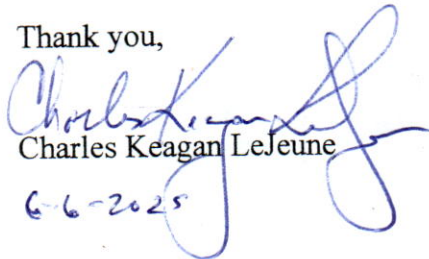 Thank you,
Charles Keagan LeJeune
Charles Keagan LeJeune
6-6-2025